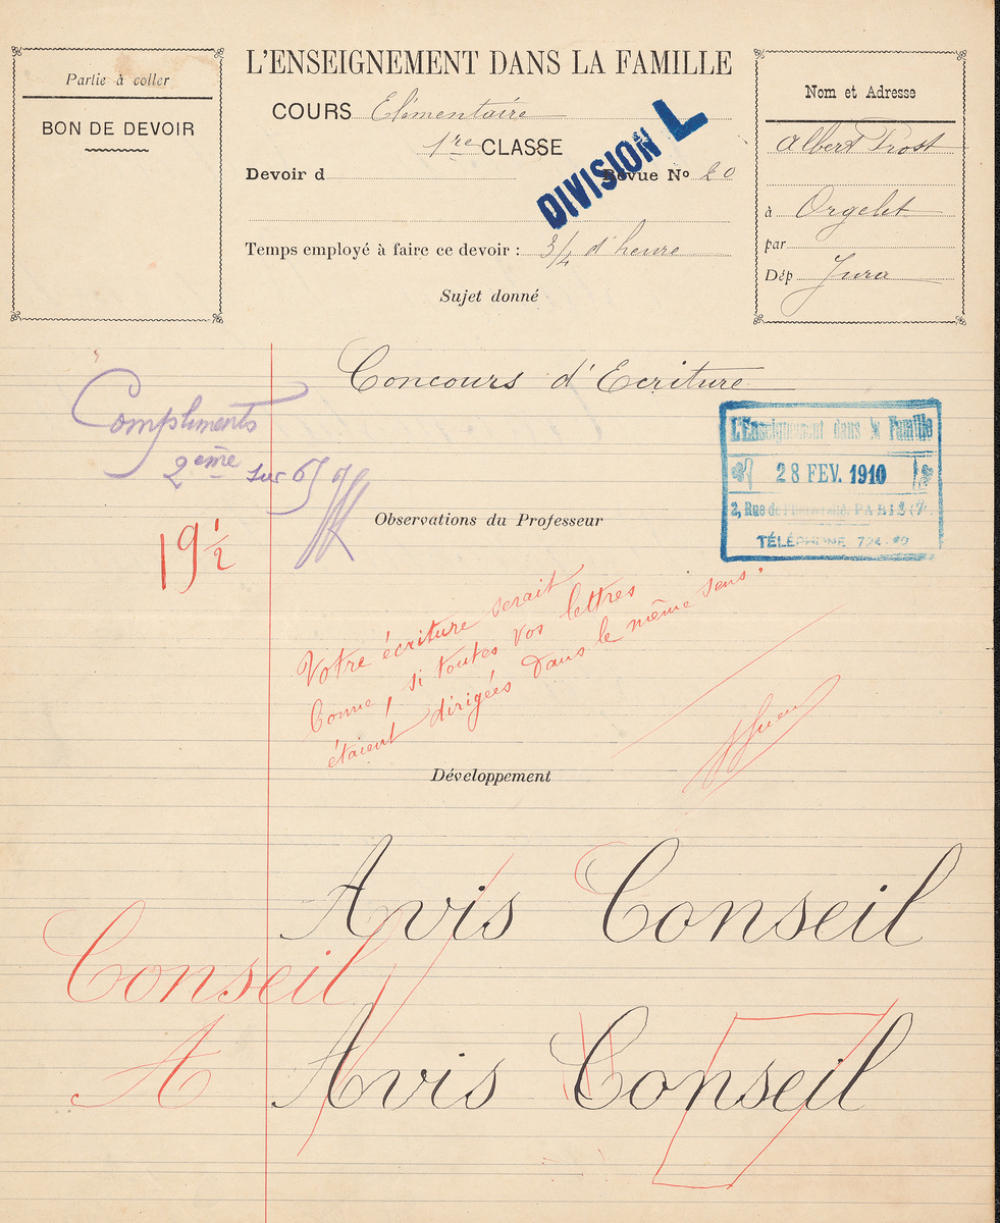 Partie à coller
BON DE DEVOIR
L'ENSEIGNEMENT DANS LA FAMILLE
COURS Elémentaire
1re CLASSE
Devoir d Revue No 20
DIVISION L
Temps employé à faire ce devoir : 3/4 d'heure
Sujet donné
Nom et Adresse
Albert Prost
à Orgelet
par
Dép Jura
Concours d'Ecriture
Compliments
2ème sur 65
19 1/2
L'Enseignement dans la Famille
28 FEV. 1910
2, Rue de l'Université, PARIS (7
TÉLÉPHONE 724-
Observations du Professeur
Votre écriture serait
bonne, si toutes vos lettres
étaient dirigées dans le même sens.
Développement
Avis Conseil
Conseil
A Avis Conseil